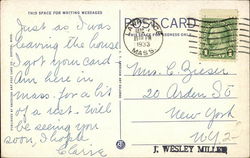 THIS SPACE FOR WRITING MESSAGES
POST CARD
1933
MASS.
Just as I was
leaving the house
I got your card.
Am here in
mass. for a bit
of a rest. Will
be seeing you
soon, I hope
Claire
Mrs. C. Zieser
20 Arden St
New York
N Y Z
J. WESLEY MILLER